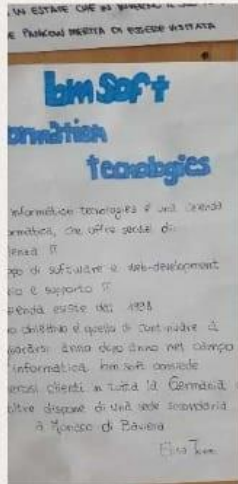 IN ESTATE CHE IN INVERNO
E PANCOW MERITA DI ESSERE VISITATA
bm Soft
ormation
tecnologies
informétion tecnologies é una
ormética, che offre
enza IT
ppo di software e web-development
io e supporto IT
ienda esiste dal 1998
o obiettivo é quello di continuare a
anno dopo anno nel campo
informatica. bm soft possiede
erosi clienti in tutta la Germania
oltre dispone di una sede secondaria
a Monaco di Baviera
Elisa